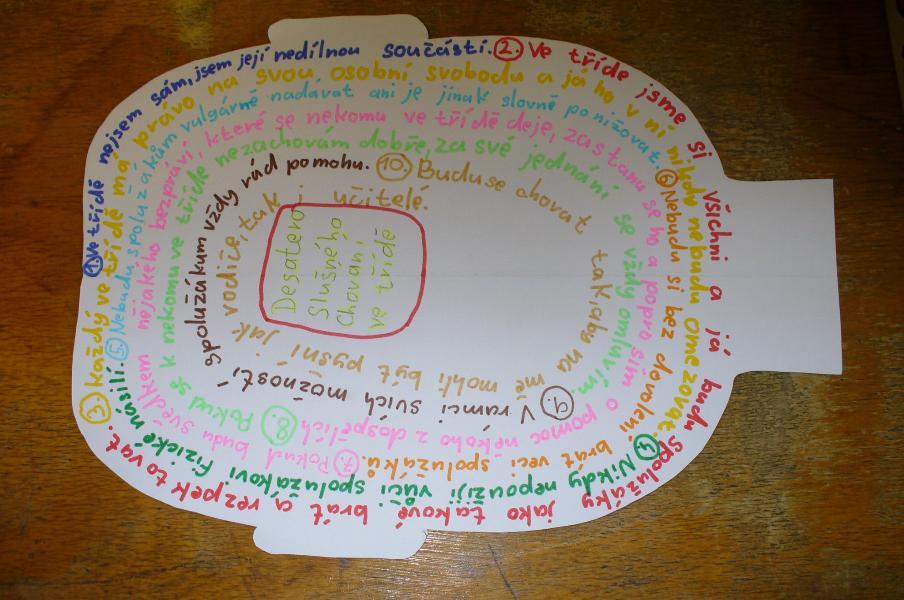 Desatero
Slušného
Chování
ve třídě
1. Ve třídě nejsem sám, jsem její nedílnou součástí.
2. Ve třídě jsme si všichni a já budu spolužáky jako takové brát a rezpektovat.
3. Každý ve třídě má právo na svou osobní svobodu a já ho v ní nikde nebudu omezovat.
4. Nikdy nepoužiji vůči spolužákovi fizické násilí.
5. Nebudu spolužákům vulgárně nadávat ani je jinak slovně ponižovat.
6. Nebudu si bez dovolení brát veci spolužáků.
7. Pokud budu svědkem nějakého bezpráví, které se nekomu ve třídě deje, zastanu se ho a poprosim o pomoc někoho z dospělich.
8. Pokud se k nekomu ve třídě nezachovám dobře, za své jednání se vždy omluvím.
9. V ramci svich možností spolužákum vždy rád pomohu.
10. Budu se chovat tak, aby na mě mohli být pyšní jak rodiče, tak i učitelé.